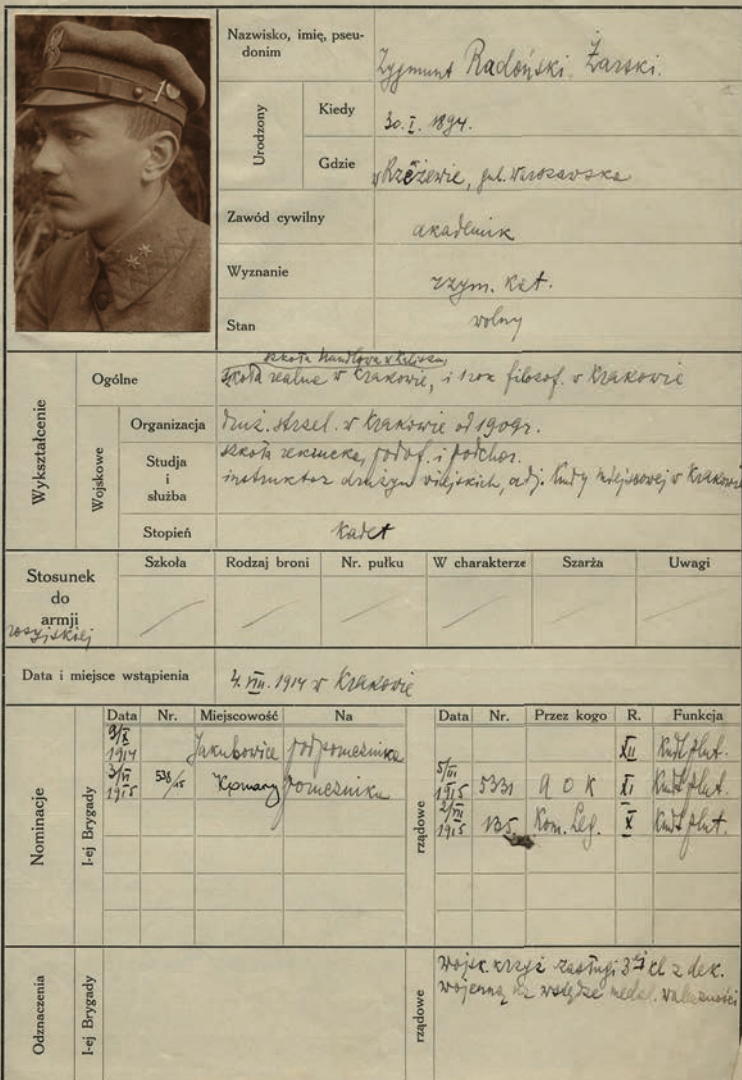 Nazwisko, imię, pseu-
donim
Zygmunt Radoński Żarski.
Urodzony
Kiedy
30.I. 1894.
Gdzie
w Rzężewie, gub. Warszawska
Zawód cywilny
akademik
Wyznanie
rzym. kat.
Stan
wolny
Wykształcenie
Ogólne
szkoła handlowa w Kaliszu,
szkoła realna w Krakowie, i 1 rok filozof. w Krakowie
Wojskowe
Organizacja
Druż. strzel. w Krakowie od 1909r.
Studja
i
służba
szkoła rekrucka, podof. i podchor.
instruktor drużyn wiejskich, adj. Kmdy miejscowej w Krakowie
Stopień
Kadet
Stosunek
do
armji
rosyjskiej
Szkoła Rodzaj broni Nr. pułku W charakterze Szarża Uwagi
Data i miejsce wstąpienia
4.VIII. 1914 w Krakowie
Nominacje
I-ej Brygady
Data Nr. Miejscowość Na
9/X
1914 Jakubowice podporucznika
3/VI
1915 538/15 porucznika
rządowe
Data Nr. Przez kogo R. Funkcja
XII Kmdt plut.
5/III
1915 5331 A O K XI Kmdt plut.
2/VII
1915 135. Kom. Leg. X Kmdt plut.
Odznaczenia
I-ej Brygady
rządowe
wojsk. krzyż zasługi 3ej kl z dek.
wojenną na wstędze medal. waleczności